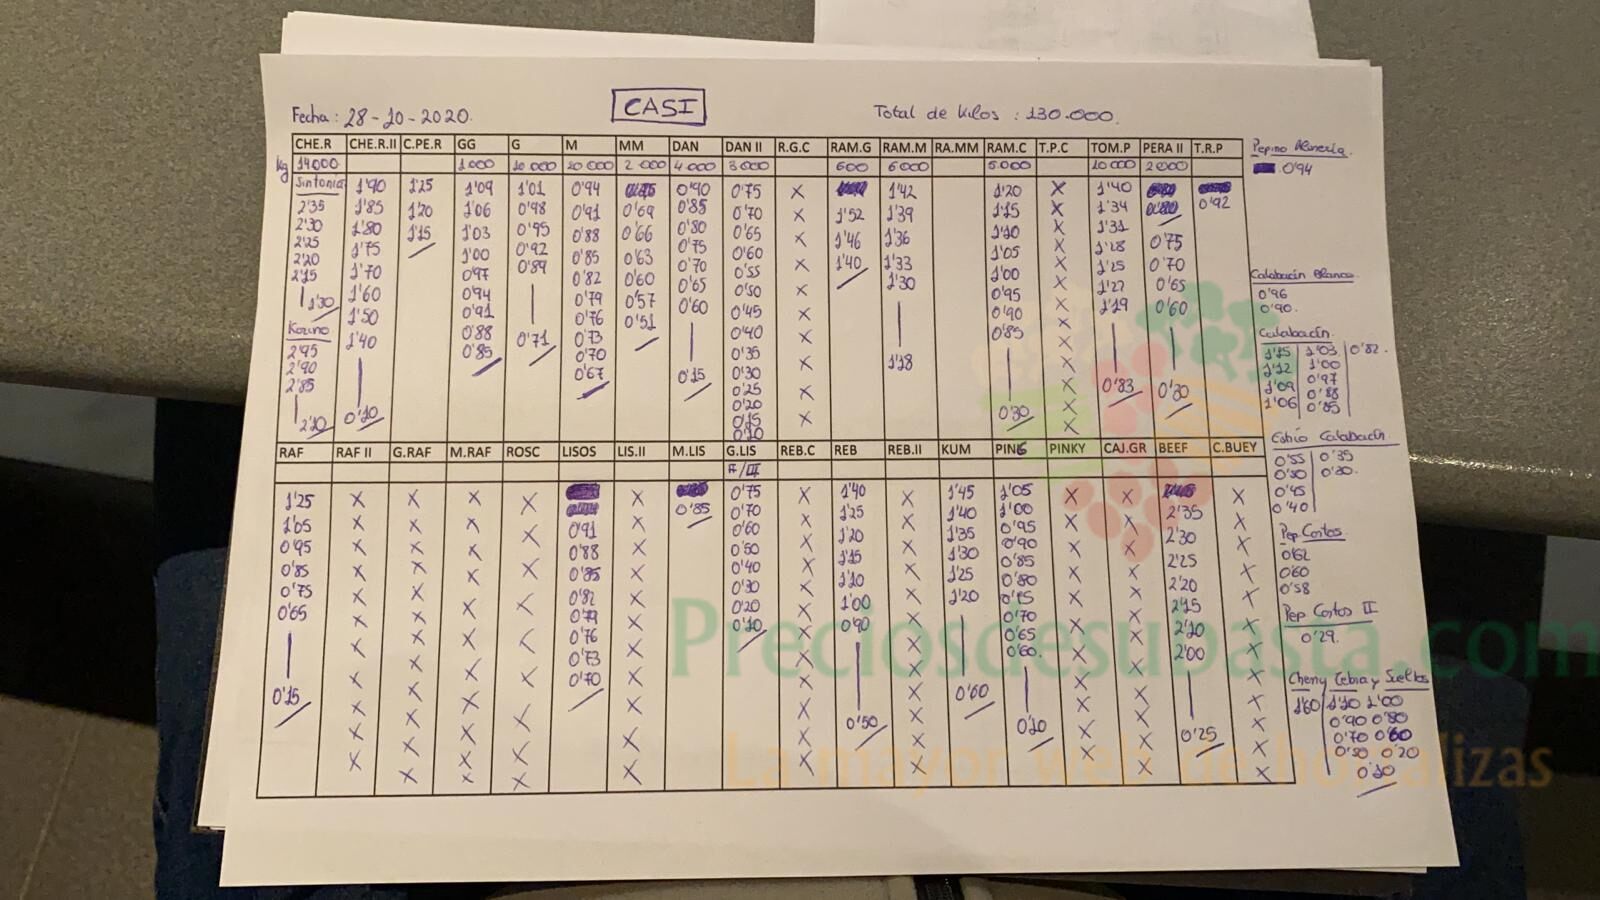 Fecha: 28-10-2020. CASI Total de kilos : 130.000.
CHE.R CHE.R.II C.PE.R GG G M MM DAN DAN II R.G.C RAM.G RAM.M RA.MM RAM.C T.P.C TOM.P PERA II T.R.P
kg 14000 1000 10 000 20 000 2 000 4 000 3 000 600 6 000 5000 10 000 2000
Sintonia 1'90 1'25 1'09 1'01 0'94 0'90 0'75 X 1'42 1'20 X 1'40
2'35 1'85 1'20 1'06 0'98 0'91 0'69 0'85 0'70 X 1'52 1'39 1'15 X 1'34 0'80 0'92
2'30 1'80 1'15 1'03 0'95 0'88 0'66 0'80 0'65 X 1'46 1'36 1'10 X 1'31 0'75
2'25 1'75 1'00 0'92 0'85 0'63 0'75 0'60 X 1'40 1'33 1'05 X 1'28 0'70
2'20 1'70 0'97 0'89 0'82 0'60 0'70 0'55 X 1'30 1'00 X 1'25 0'65
2'15 1'60 0'94 0'79 0'57 0'65 0'50 X 0'95 X 1'22 0'60
1'30 1'50 0'91 0'76 0'51 0'60 0'45 X 0'90 X 1'19
1'40 0'88 0'71 0'73 0'40 X 0'85 X
2'95 0'85 0'70 0'35 X 1'18 X
2'90 0'67 0'15 0'30 X X 0'83 0'30
2'85 0'25 X X
2'10 0'10 0'20 X 0'30 X
0'15
0'10
RAF RAF II G.RAF M.RAF ROSC LISOS LIS.II M.LIS G.LIS REB.C REB REB.II KUM PINK PINKY CAJ.GR BEEF C.BUEY
II/III
1'25 X X X X X 0'75 X 1'40 X 1'45 1'05 X X X
1'05 X X X X X 0'85 0'70 X 1'25 X 1'40 1'00 X X 2'35 X
0'95 X X X X 0'91 X 0'60 X 1'20 X 1'35 0'95 X X 2'30 X
0'85 X X X X 0'88 X 0'50 X 1'15 X 1'30 0'90 X X 2'25 X
0'75 X X X X 0'85 X 0'40 X 1'10 X 1'25 0'85 X X 2'20 X
0'65 X X X X 0'82 X 0'30 X 1'00 X 1'20 0'80 X X 2'15 X
X X X X 0'79 X 0'20 X 0'90 X 0'75 X X 2'10 X
X X X X 0'76 X 0'10 X X 0'70 X X 2'00 X
X X X X 0'73 X X X 0'65 X X X
0'15 X X X X 0'70 X X 0'50 X 0'60 0'60 X X X
0'10 0'25
Pepino Almería
0'94
Calabacín Blanco
0'96
0'90.
Calabacín
1'15 1'03 0'82.
1'12 1'00
1'09 0'97
1'06 0'88
0'85
Calabacín
0'55 0'35
0'50 0'30.
0'45
0'40
Pep. Cortos.
0'62
0'60
0'58
Pep Cortos II
0'29.
Cherry Cebra y Sueltos
1'60 1'10 1'00
0'90 0'80
0'70 0'60
0'50 0'20
0'10
Preciosdesubasta.com
La mayor web de hortalizas